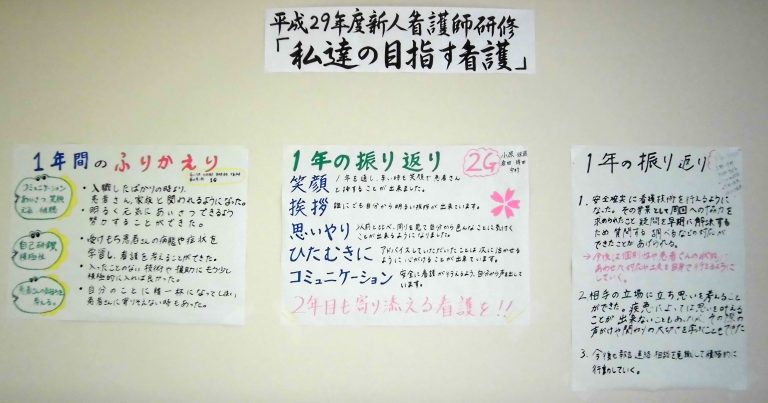 平成29年度新人看護師研修
「私達の目指す看護」
1年間のふりかえり
1G
コミュニケーション
あいさつ 笑顔
・入職したばかりの時より、
患者さん、家族と関われるようになった。
・明るく元気にあいさつできるよう
努力することができた。
自己研鑽
積極性
・受けもち患者さんの病態や症状を
学習し、看護を考えることができた。
・入ったことのない技術や援助にもう少し
積極的に入れば良かった。
・自分のことに精一杯になってしまい、
患者さんに寄りそえない時もあった。
1年の振り返り
2G
笑顔
1年を通し、辛い時も笑顔で患者さん
と接することが出来ました。
挨拶
誰にでも自分から明るい挨拶が出来ています。
思いやり
以前と比べ、周りを見て自分から色んなことに気付く
ことが出来るようになりました。
ひたむきに
アドバイスしていただいたことは次に活かせる
ように心がけることが出来ています。
コミュニケーション
安全に看護が行えるよう、自分から発信して
います。
2年目も寄り添える看護を!!
1年の振り返り
1. 安全確実に看護技術を行えるように
なった。その背景として周囲への協力を
求められたこと 疑問を早期に解決するため
質問する 調べるなどの対応が
できたことがあげられる。
2. 相手の立場に立ち思いを考えること
ができた。疾患によっては思いを叶える
ことが出来ないこともあったが、その際の
声がけや関わりの大切さを学ぶこともできた
3. 今後も報告 連絡 相談を意識して積極的に
行動していく。